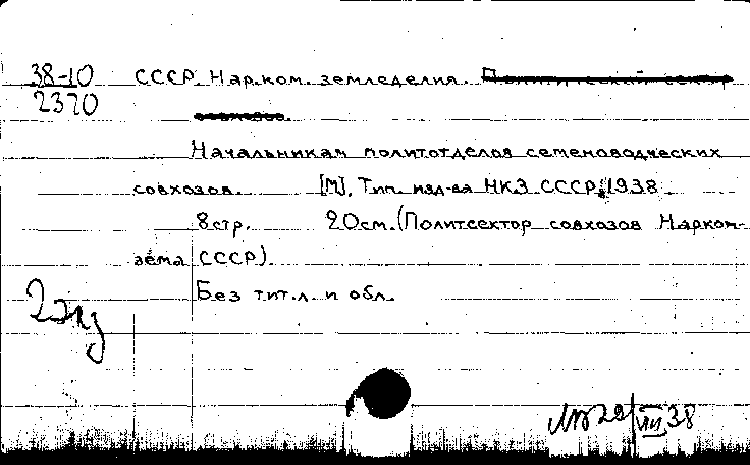 38-10
2370
СССР. Нар.ком. земледелия.
Начальникам политотделов семеноводческих
совхозов. [М]. Тип. изд-ва НКЗ СССР, 1938.
8стр. 20см. (Политсектор совхозов Нарком-
зема СССР).
Без тит.л. и обл.
2экз
29/VIII 38